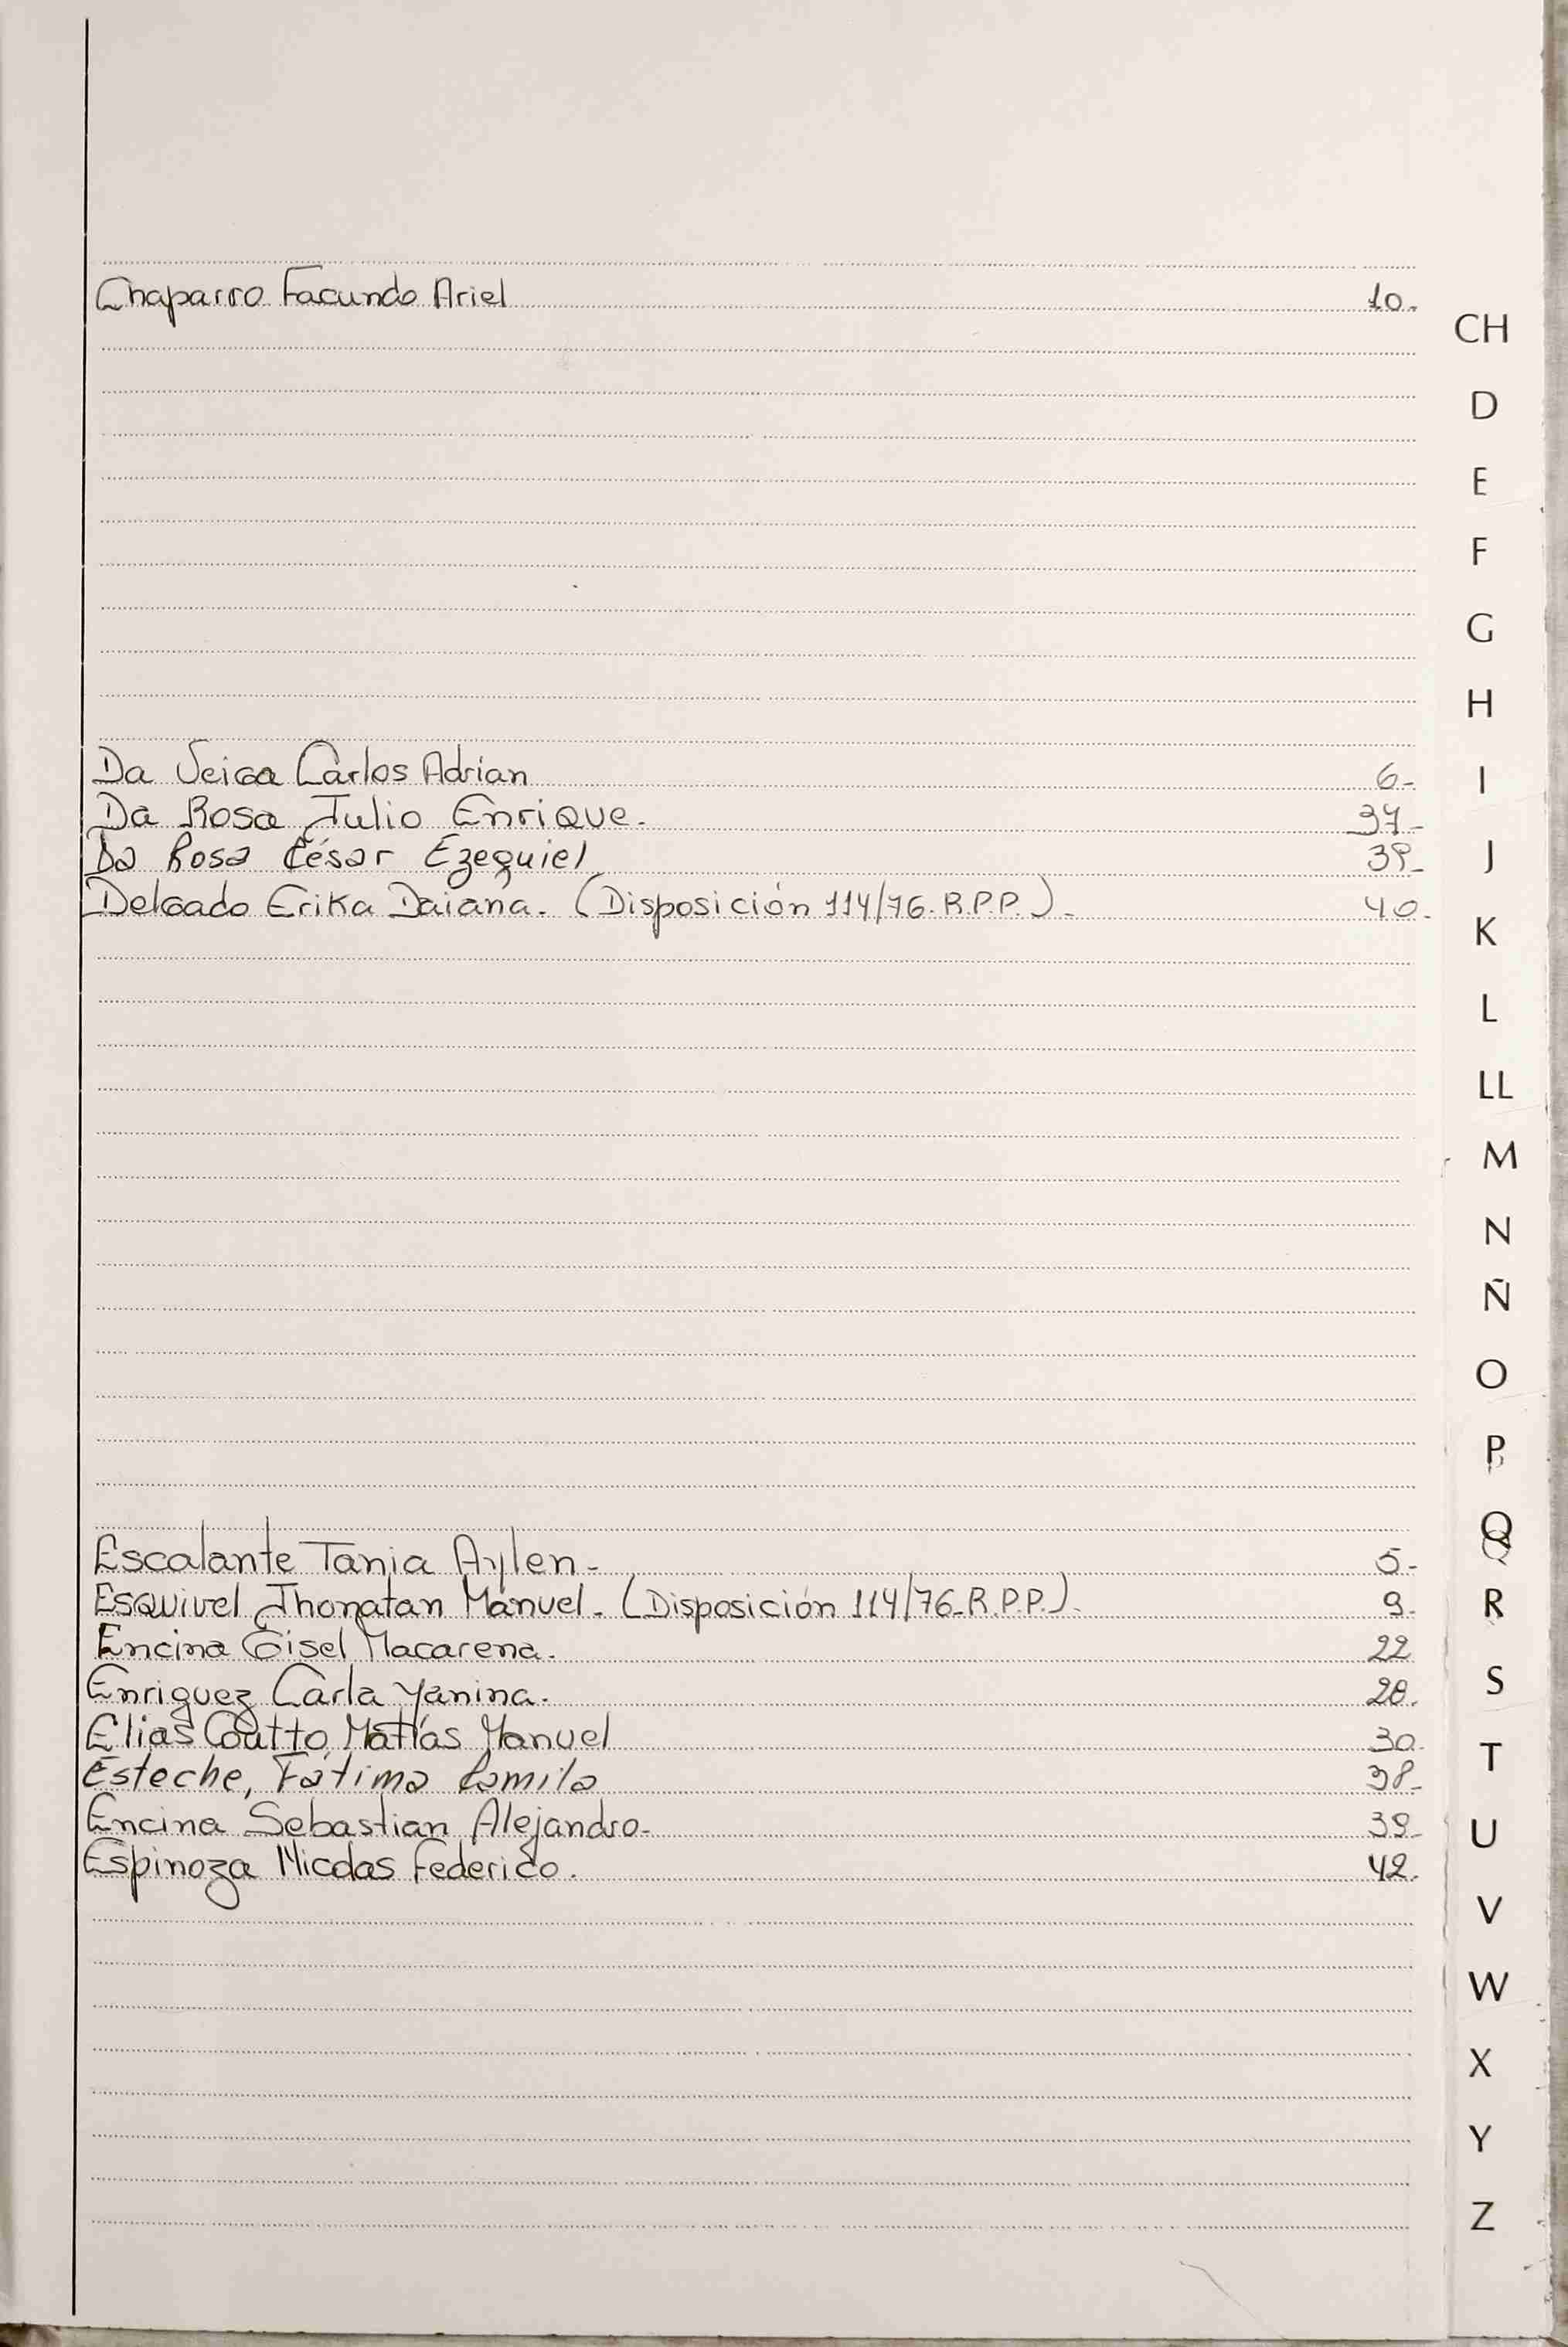 Chaparro Facundo Ariel 10.
CH
D
E
F
G
H
Da Veiga Carlos Adrian 6-
I
Da Rosa Julio Enrique. 37-
Da Rosa César Ezequiel 39-
J
Delgado Erika Daiana. (Disposición 114/76. R.P.P.). 40.
K
L
LL
M
N
Ñ
O
P
Q
Escalante Tania Aylen- 5-
Esquivel Jhonatan Manuel. (Disposición 114/76-R.P.P.). 9.
R
Encina Gisel Macarena. 22
Enriquez Carla Yanina. 28.
S
Elias Coutto, Matías Manuel 30.
T
Esteche, Fátima Camila 38-
Encina Sebastian Alejandro- 39-
U
Espinoza Nicolas Federico. 42.
V
W
X
Y
Z